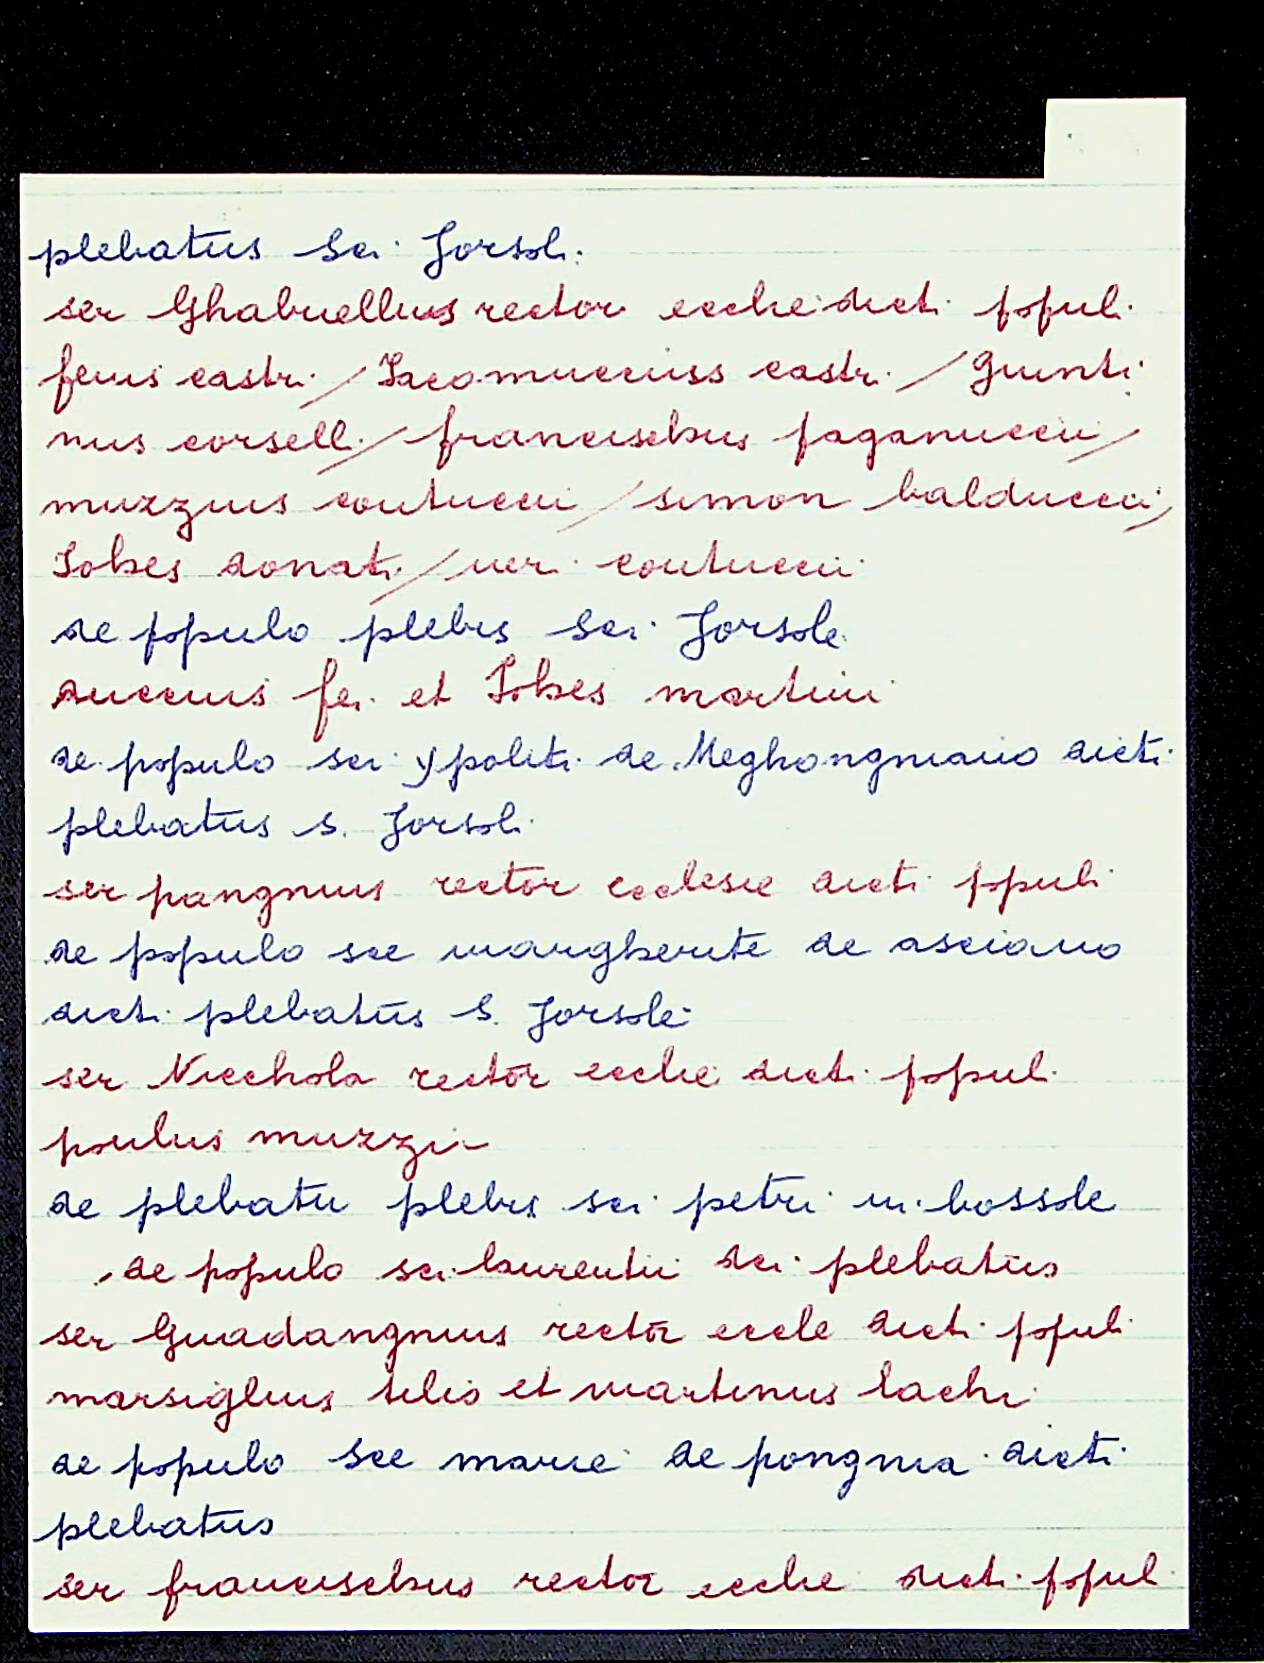 plebatus sci Jorsoli
ser Ghabriellus rector ecclie dicti populi
feius castri / Iacomucciuss castri / Giunti
nus corselli / francischus paganuccii /
muzzius contuccii / simon balduccii /
Iohes donati / ueri contuccii
de populo plebis sci Jorsole
duccius fei et Iohes martini
de populo sci ypoliti de Meghongniano dicti
plebatus s. Jorsoli
ser pangnius rector ecclesie dicti populi
de populo sce margherite de asciano
dicti plebatus S. Jorsole
ser Nicchola rector ecclie dicti populi
poulus muzzi
de plebatu plebis sci petri in bossole
de populo sci laurentii dci plebatus
ser Guadangnius rector eccle dicti populi
marsiglius telis et martinus lachi
de populo sce marie de pongnia dicti
plebatus
ser francischus rector ecclie dicti popul